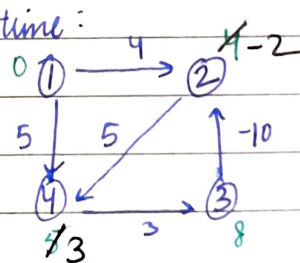 time:
4 4 -2
0 1 2
5 5 -10
4 3
3
5 3 8